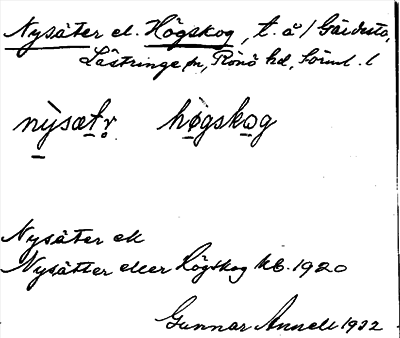 Nysäter el. Högskog, t. å / Gärdesta,
Lästringe sn, Rönö hd, Söml. l
nysætr högskog
Nysäter el
Nysätter eller Högskog kb. 1920
Gunnar Annell 1932